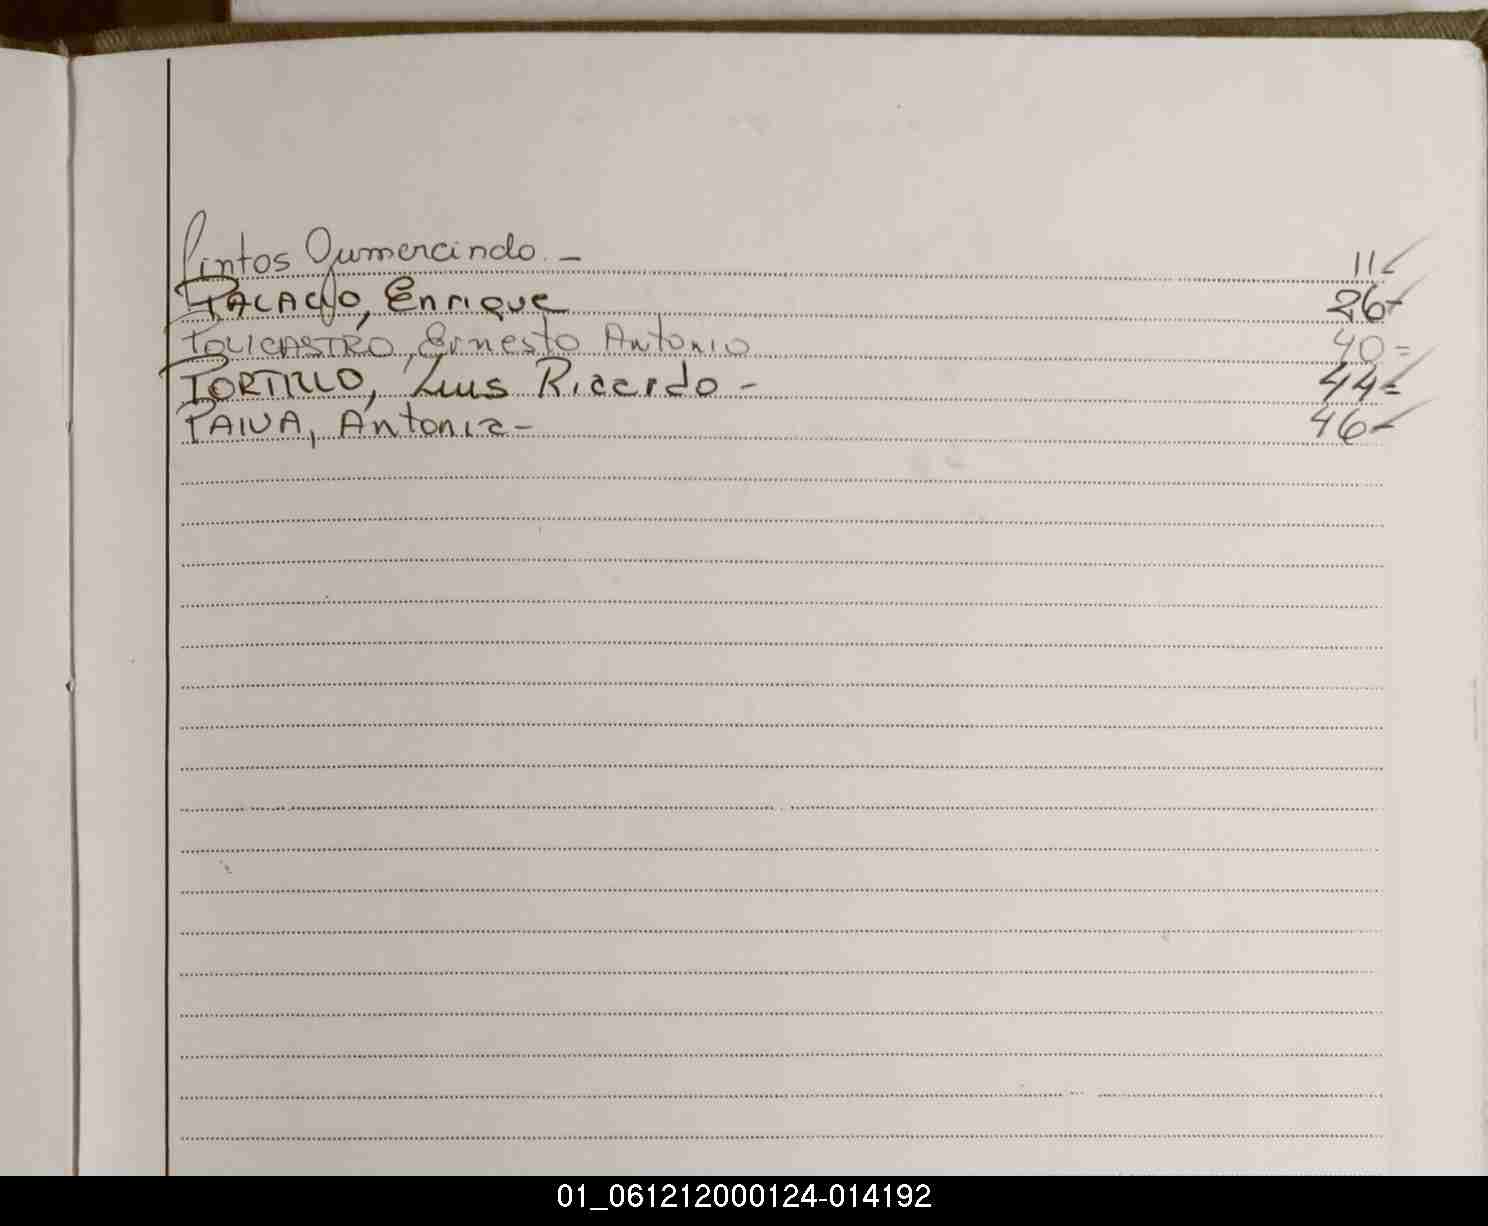 Pintos Gumercindo. - 11
PALACIO, Enrique 26
POLICASTRO, Ernesto Antonio 40
PORTILLO, Luis Ricardo - 44
PAIVA, Antonia - 46
01_061212000124-014192